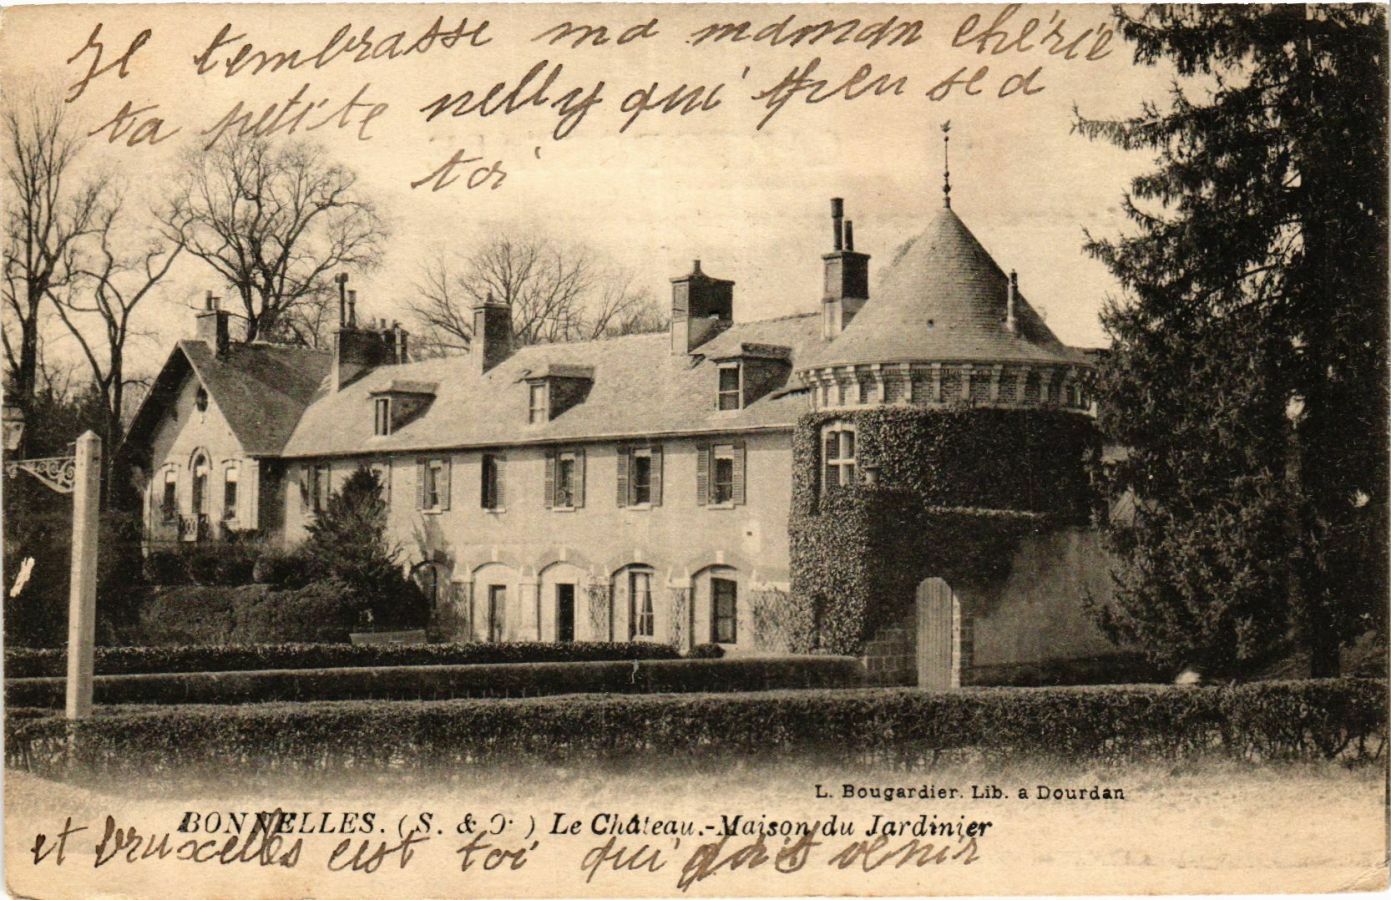 Je tembrasse ma maman chérie
ta petite nelly qui pen sea
toi
L. Bougardier. Lib. a Dourdan
BONNELLES. (S. & O. ) Le Château.-Maison du Jardinier
et bruxelles est toi qui dois venir